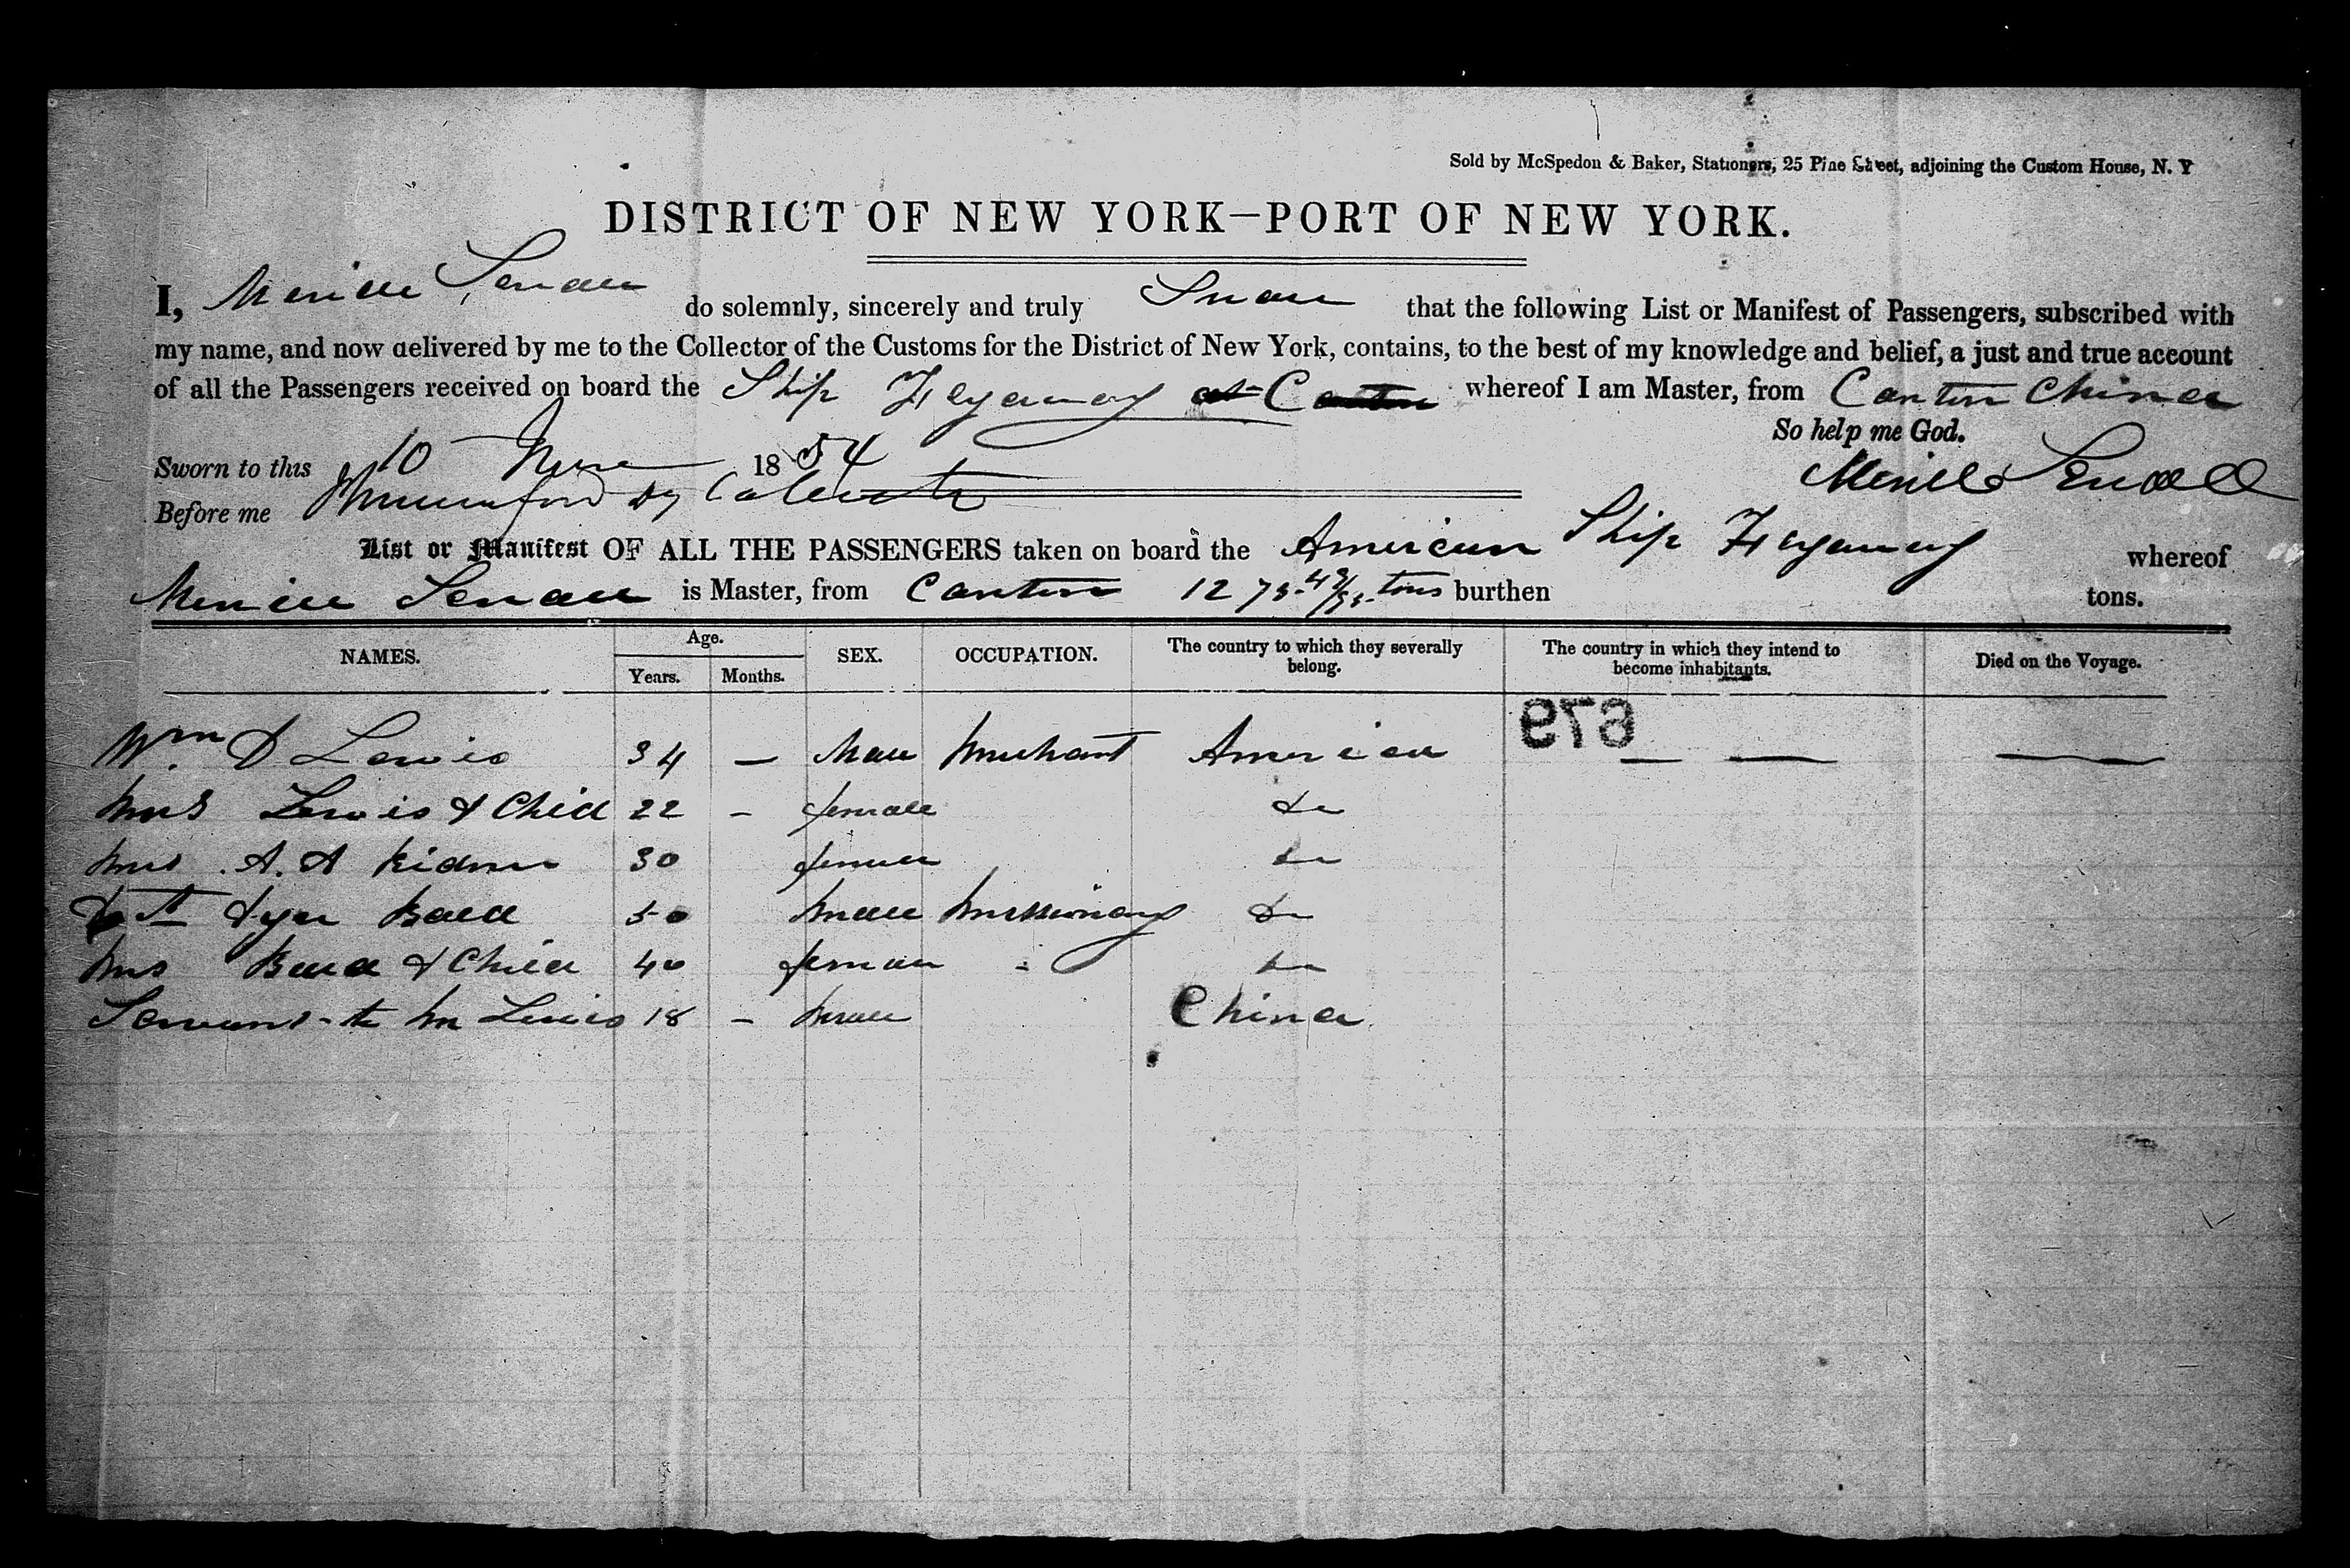 Sold by McSpedon & Baker, Stationers, 25 Pine Street, adjoining the Custom House, N. Y
DISTRICT OF NEW YORK—PORT OF NEW YORK.
I, Merrill Sendall do solemnly, sincerely and truly Swear that the following List or Manifest of Passengers, subscribed with
my name, and now delivered by me to the Collector of the Customs for the District of New York, contains, to the best of my knowledge and belief, a just and true account
of all the Passengers received on board the Ship whereof I am Master, from Canton China
So help me God.
Sworn to this 10 June 1854
Before me
List or Manifest OF ALL THE PASSENGERS taken on board the American Ship whereof
is Master, from Canton tons burthen tons.
NAMES. Age. SEX. OCCUPATION. The country to which they severally belong. The country in which they intend to become inhabitants. Died on the Voyage.
Years. Months.
679
Wm. D Lewis 34 — Male Merchant America — — —
Mrs Lewis & Child 22 - female do
Mrs A. A 30 female do
Dyer Ball 50 male missionary do
Mrs Ball & Child 40 female - do
Servant to Mr Lewis 18 - male China